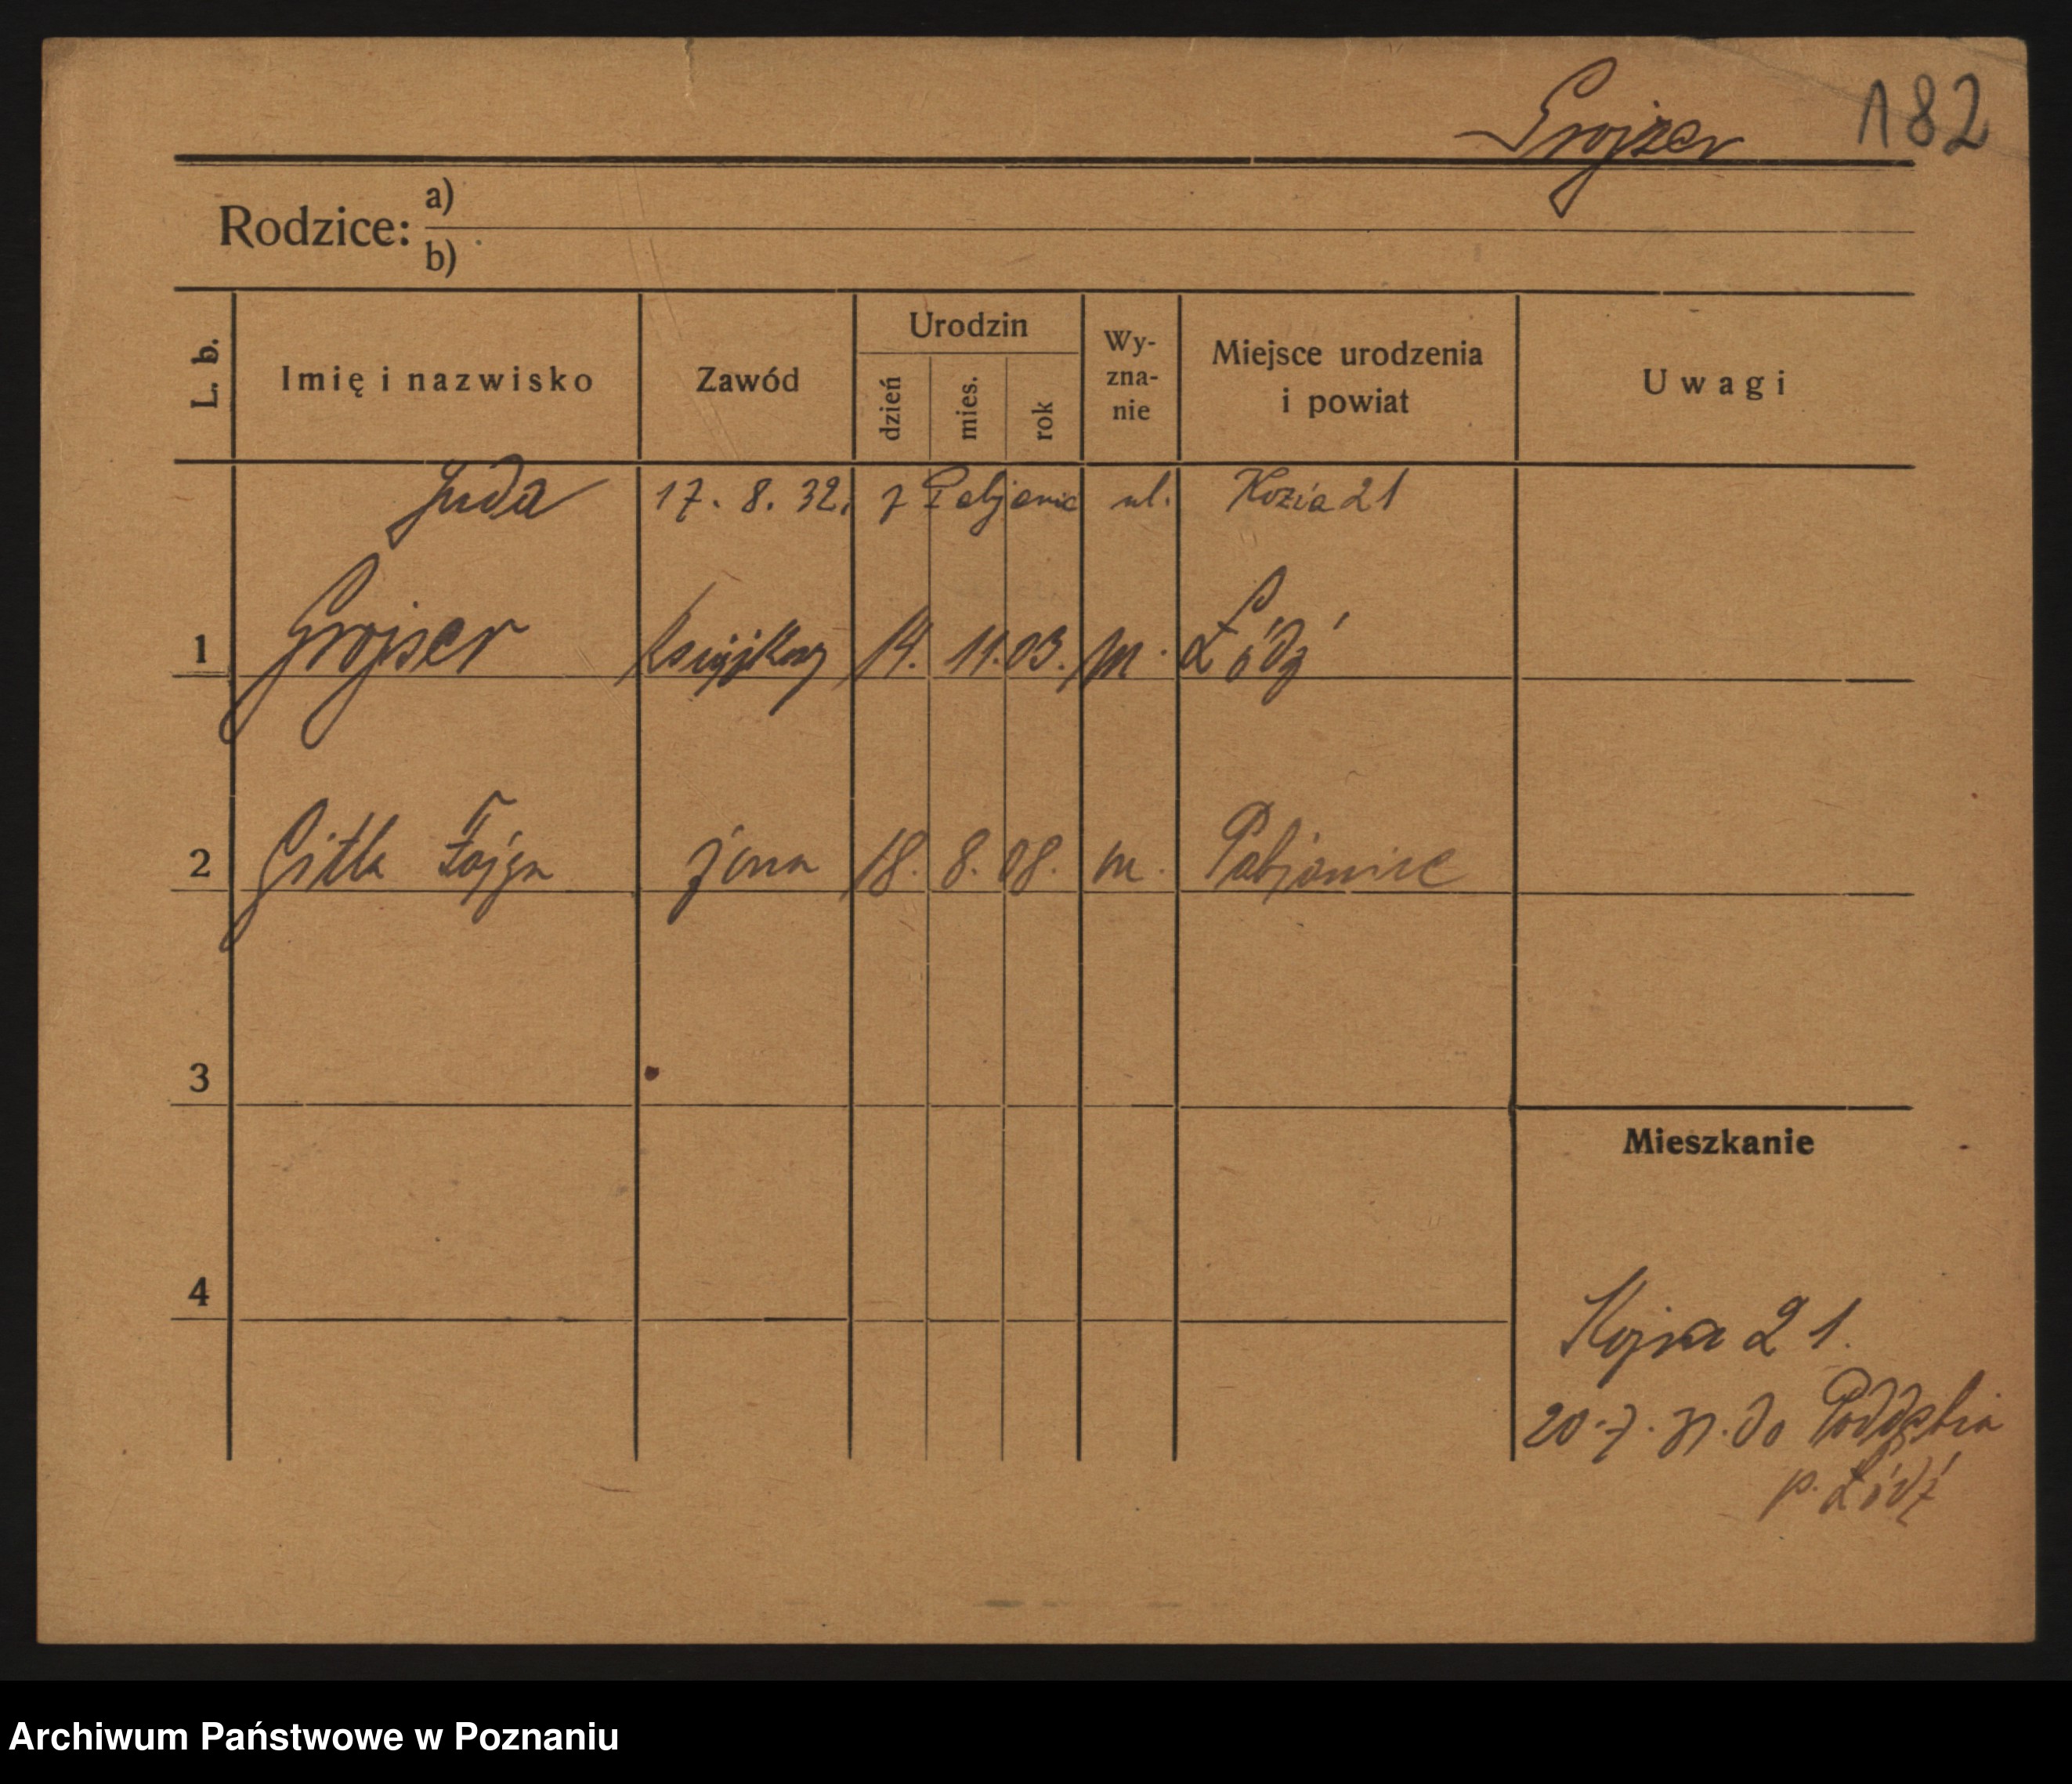 Grojzer 182
Rodzice: a)
b)
L. b. Imię i nazwisko Zawód Urodzin dzień mies. rok Wy-zna-nie Miejsce urodzenia i powiat Uwagi
Juda 17. 8. 32. z Pabjanic ul. Kozia 21
1 Grojser 14. 11. 03. m. Łódź
2 Gitla Fajga żona 18. 8. 08. m. Pabjanice
3
4
Mieszkanie
Kozia 21.
20.7. do Poddębia
p. Łódź
Archiwum Państwowe w Poznaniu